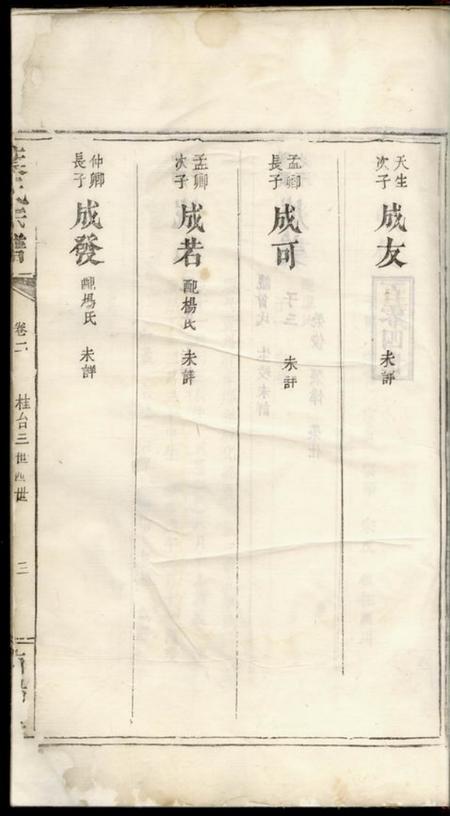 天生次子 成友 未詳
孟卿長子 成可 未詳
孟卿次子 成若 配楊氏 未詳
仲卿長子 成發 配楊氏 未詳
氏譜
卷二
桂台三世四世
三